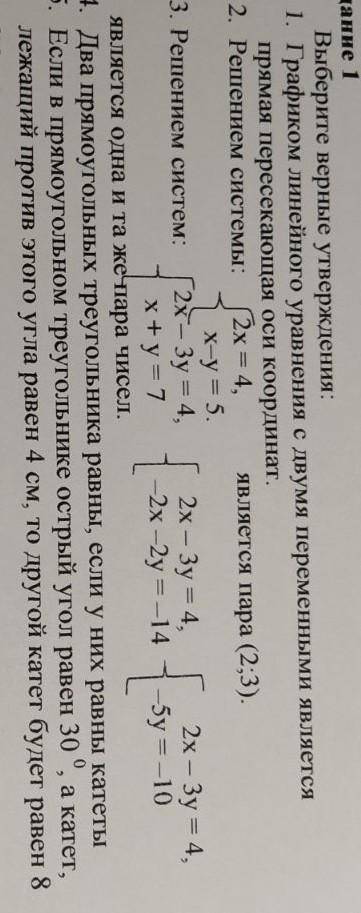 дание 1
Выберите верные утверждения:
1. Графиком линейного уравнения с двумя переменными является
прямая пересекающая оси координат.
2. Решением системы: { 2x = 4, x–y = 5. является пара (2;3).
3. Решением систем: { 2x – 3y = 4, x + y = 7 { 2x – 3y = 4, –2x –2y = –14 { 2x – 3y = 4, –5y = –10
является одна и та же пара чисел.
4. Два прямоугольных треугольника равны, если у них равны катеты
5. Если в прямоугольном треугольнике острый угол равен 30 ⁰, а катет,
лежащий против этого угла равен 4 см, то другой катет будет равен 8